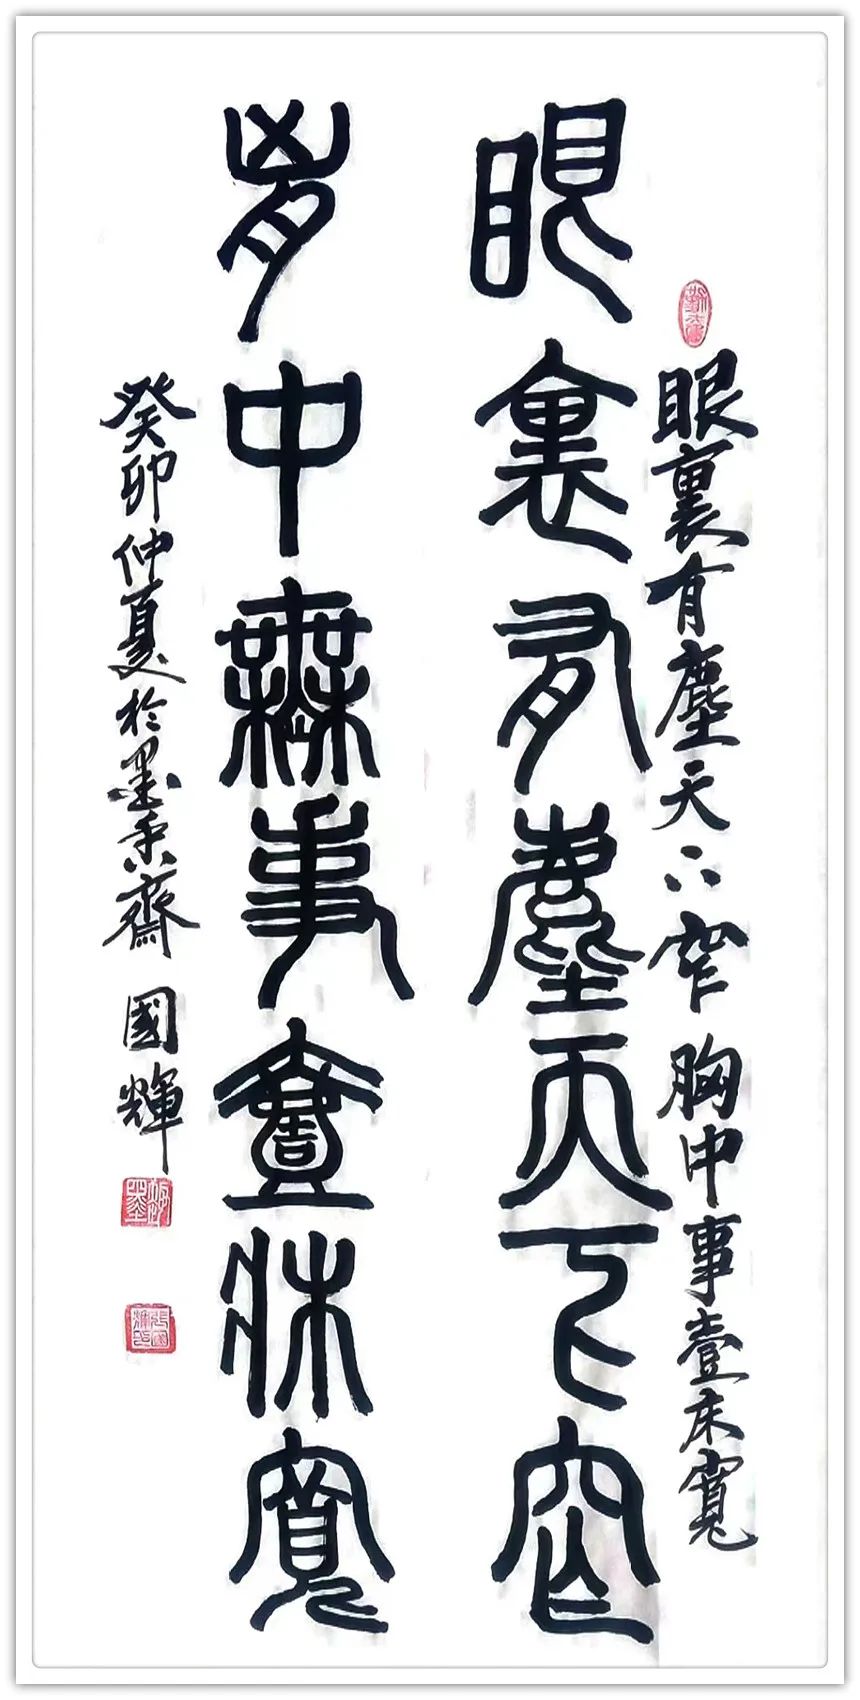 眼裏有塵天下窄胸中事壹床寬
眼裏有塵天下窄
胷中無事壹牀寬
癸卯仲夏於墨香齋 國輝